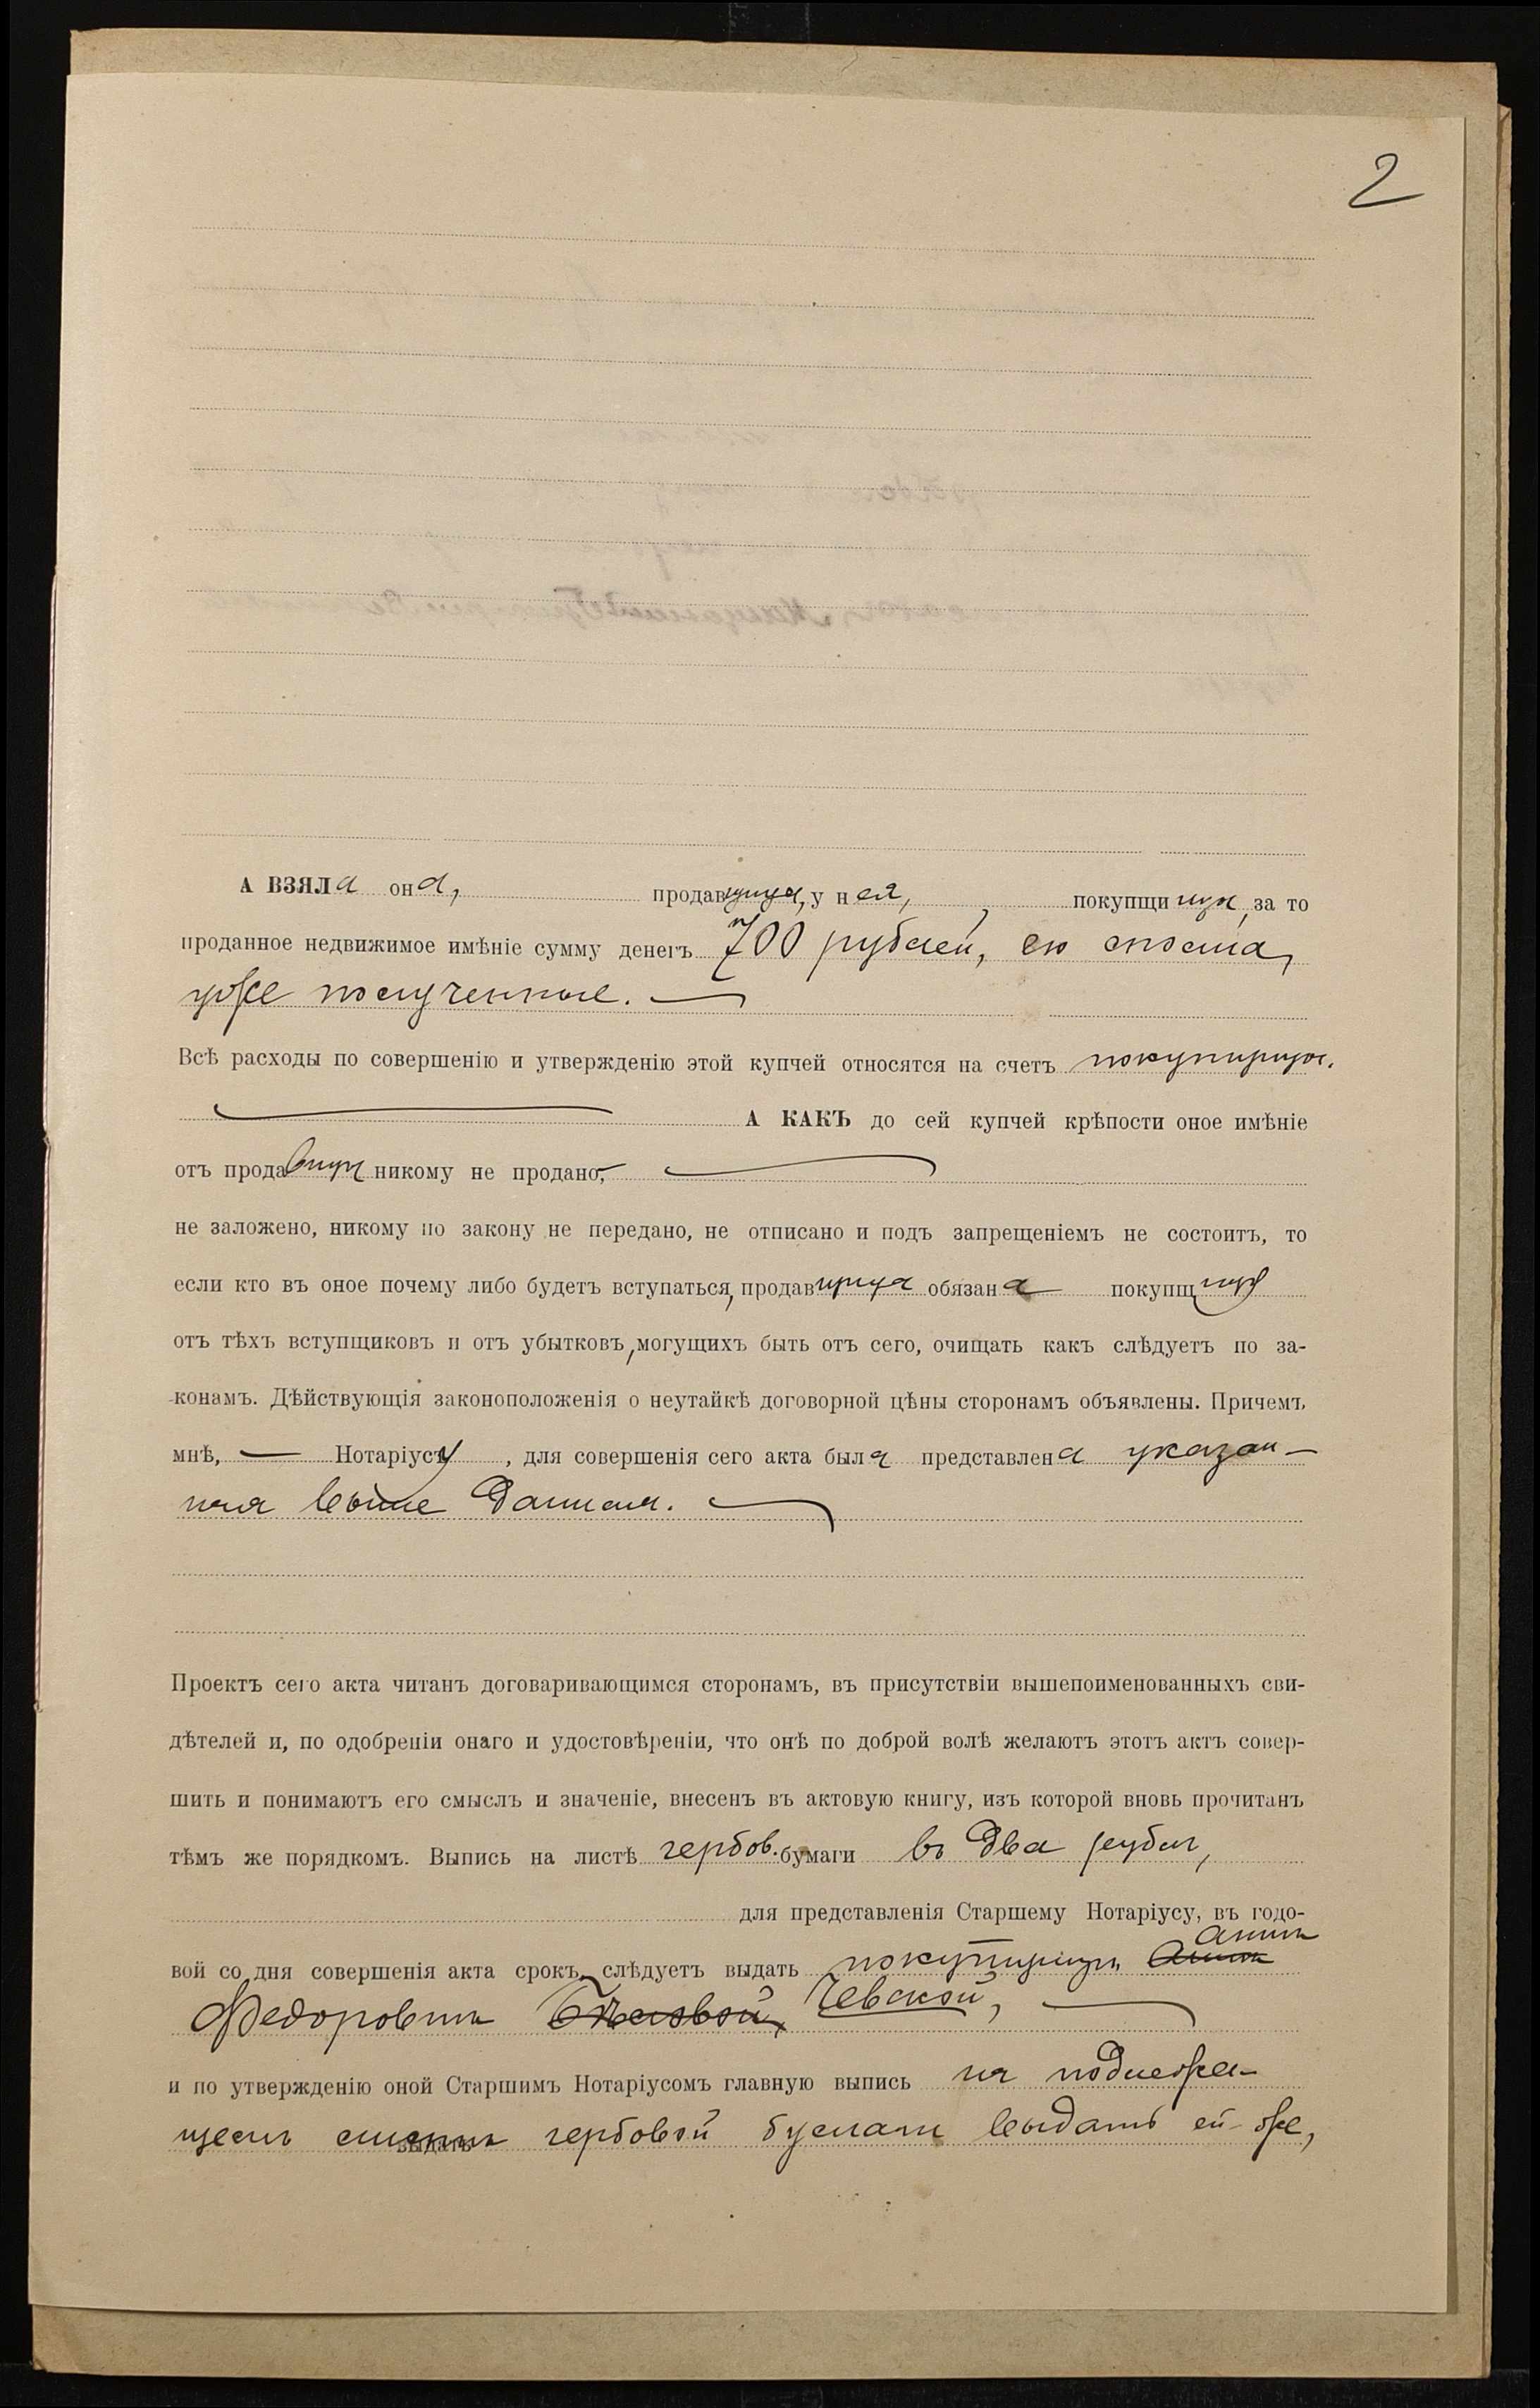 2
А ВЗЯЛа она, продавщица, у нея, покупщицы, за то
проданное недвижимое имѣніе сумму денегъ 700 рублей, ею сполна,
уже полученные.
Всѣ расходы по совершенію и утвержденію этой купчей относятся на счетъ покупщицы.
А КАКЪ до сей купчей крѣпости оное имѣніе
отъ продавщицы никому не продано,
не заложено, никому по закону не передано, не отписано и подъ запрещеніемъ не состоитъ, то
если кто въ оное почему либо будетъ вступаться, продавщица обязана покупщицу
отъ тѣхъ вступщиковъ и отъ убытковъ, могущихъ быть отъ сего, очищать какъ слѣдуетъ по за-
конамъ. Дѣйствующія законоположенія о неутайкѣ договорной цѣны сторонамъ объявлены. Причемъ
мнѣ, Нотаріусу, для совершенія сего акта была представлена указан-
ная выше Данная.
Проектъ сего акта читанъ договаривающимся сторонамъ, въ присутствіи вышепоименованныхъ сви-
дѣтелей и, по одобреніи онаго и удостовѣреніи, что онѣ по доброй волѣ желаютъ этотъ актъ совер-
шить и понимаютъ его смыслъ и значеніе, внесенъ въ актовую книгу, изъ которой вновь прочитанъ
тѣмъ же порядкомъ. Выпись на листѣ гербов. бумаги въ два рубля,
для представленія Старшему Нотаріусу, въ годо-
Аннѣ
вой со дня совершенія акта срокъ, слѣдуетъ выдать покупщицѣ Аннѣ
Федоровнѣ Бѣловой, Чевской,
и по утвержденію оной Старшимъ Нотаріусомъ главную выпись на подлежа-
щемъ листѣ гербовой бумаги выдать ей-же,
выдать